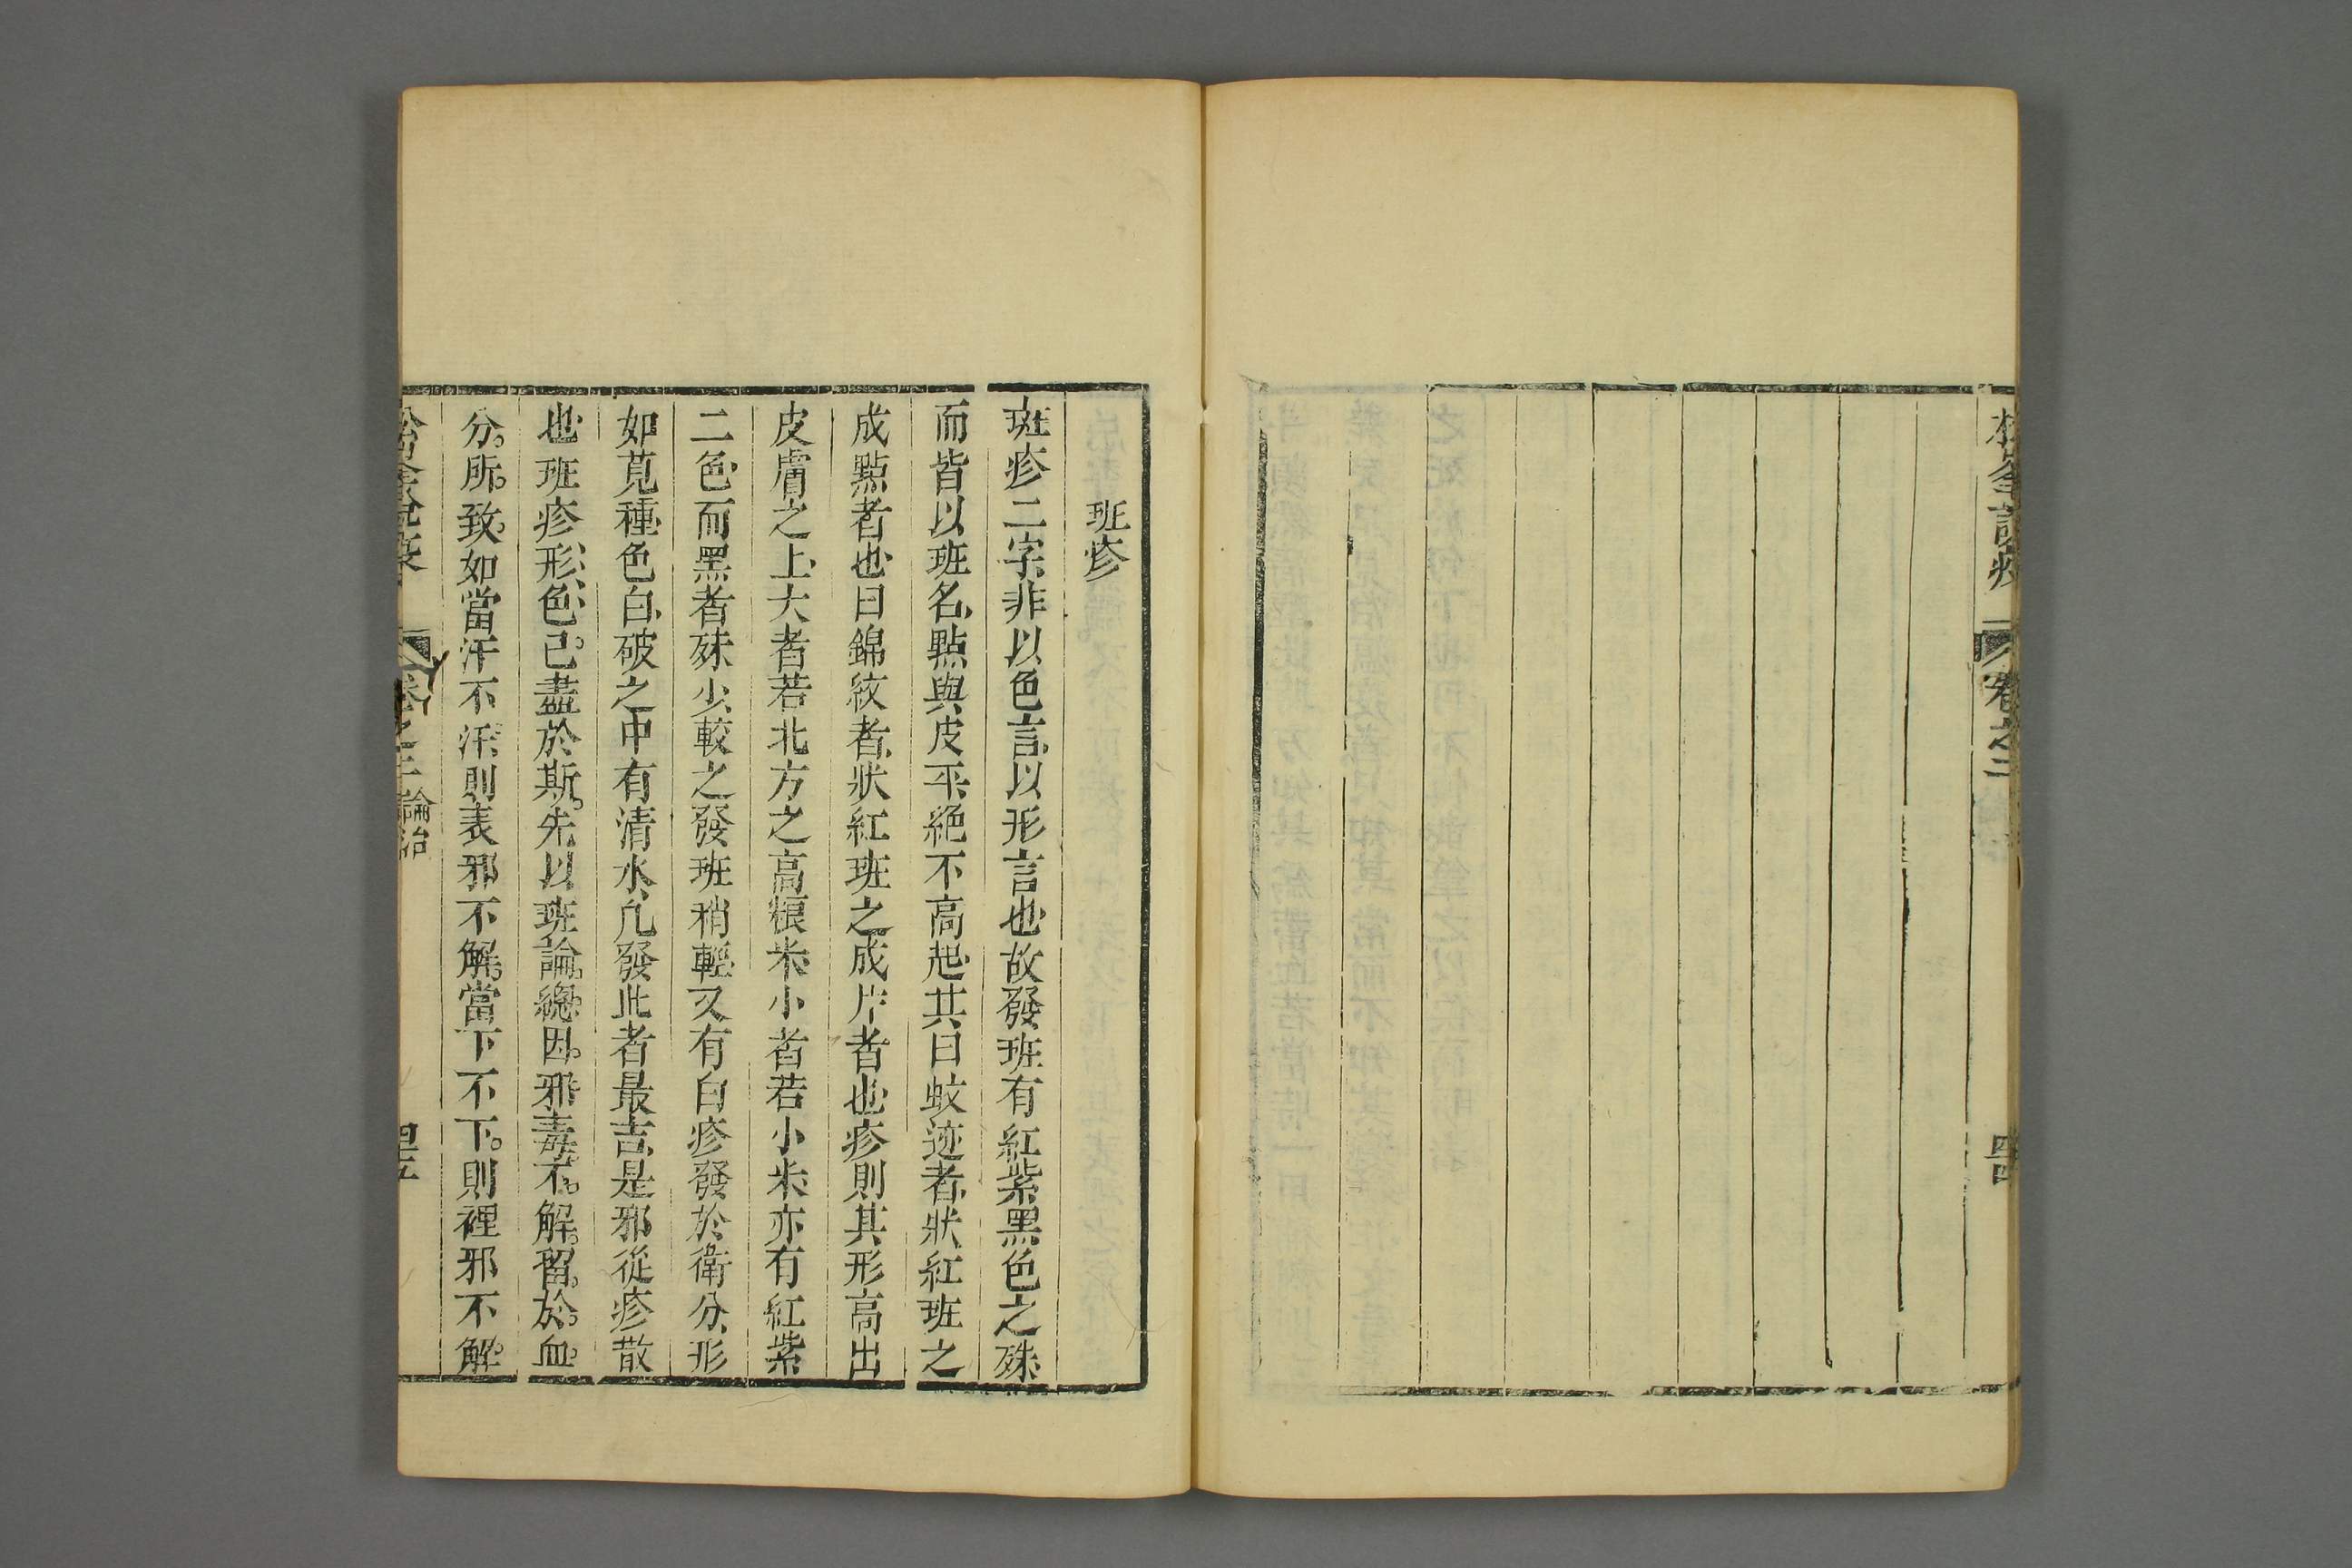 松峯說疫
卷之二
四十四
班疹
斑疹二字非以色言以形言也故發班有紅紫黑色之殊
而皆以班名點與皮平絕不高起共曰蚊迹者狀紅班之
成點者也曰錦紋者狀紅班之成片者也疹則其形高出
皮膚之上大者若北方之高粮米小者若小米亦有紅紫
二色而黑者殊少較之發班稍輕又有白疹發於衛分形
如莧種色白破之中有清水凢發此者最吉是邪從疹散
也班疹形色已盡於斯先以班論總因邪毒不解留於血
分所致如當汗不汗則表邪不解當下不下則裡邪不解
卷之二 論治
四十五